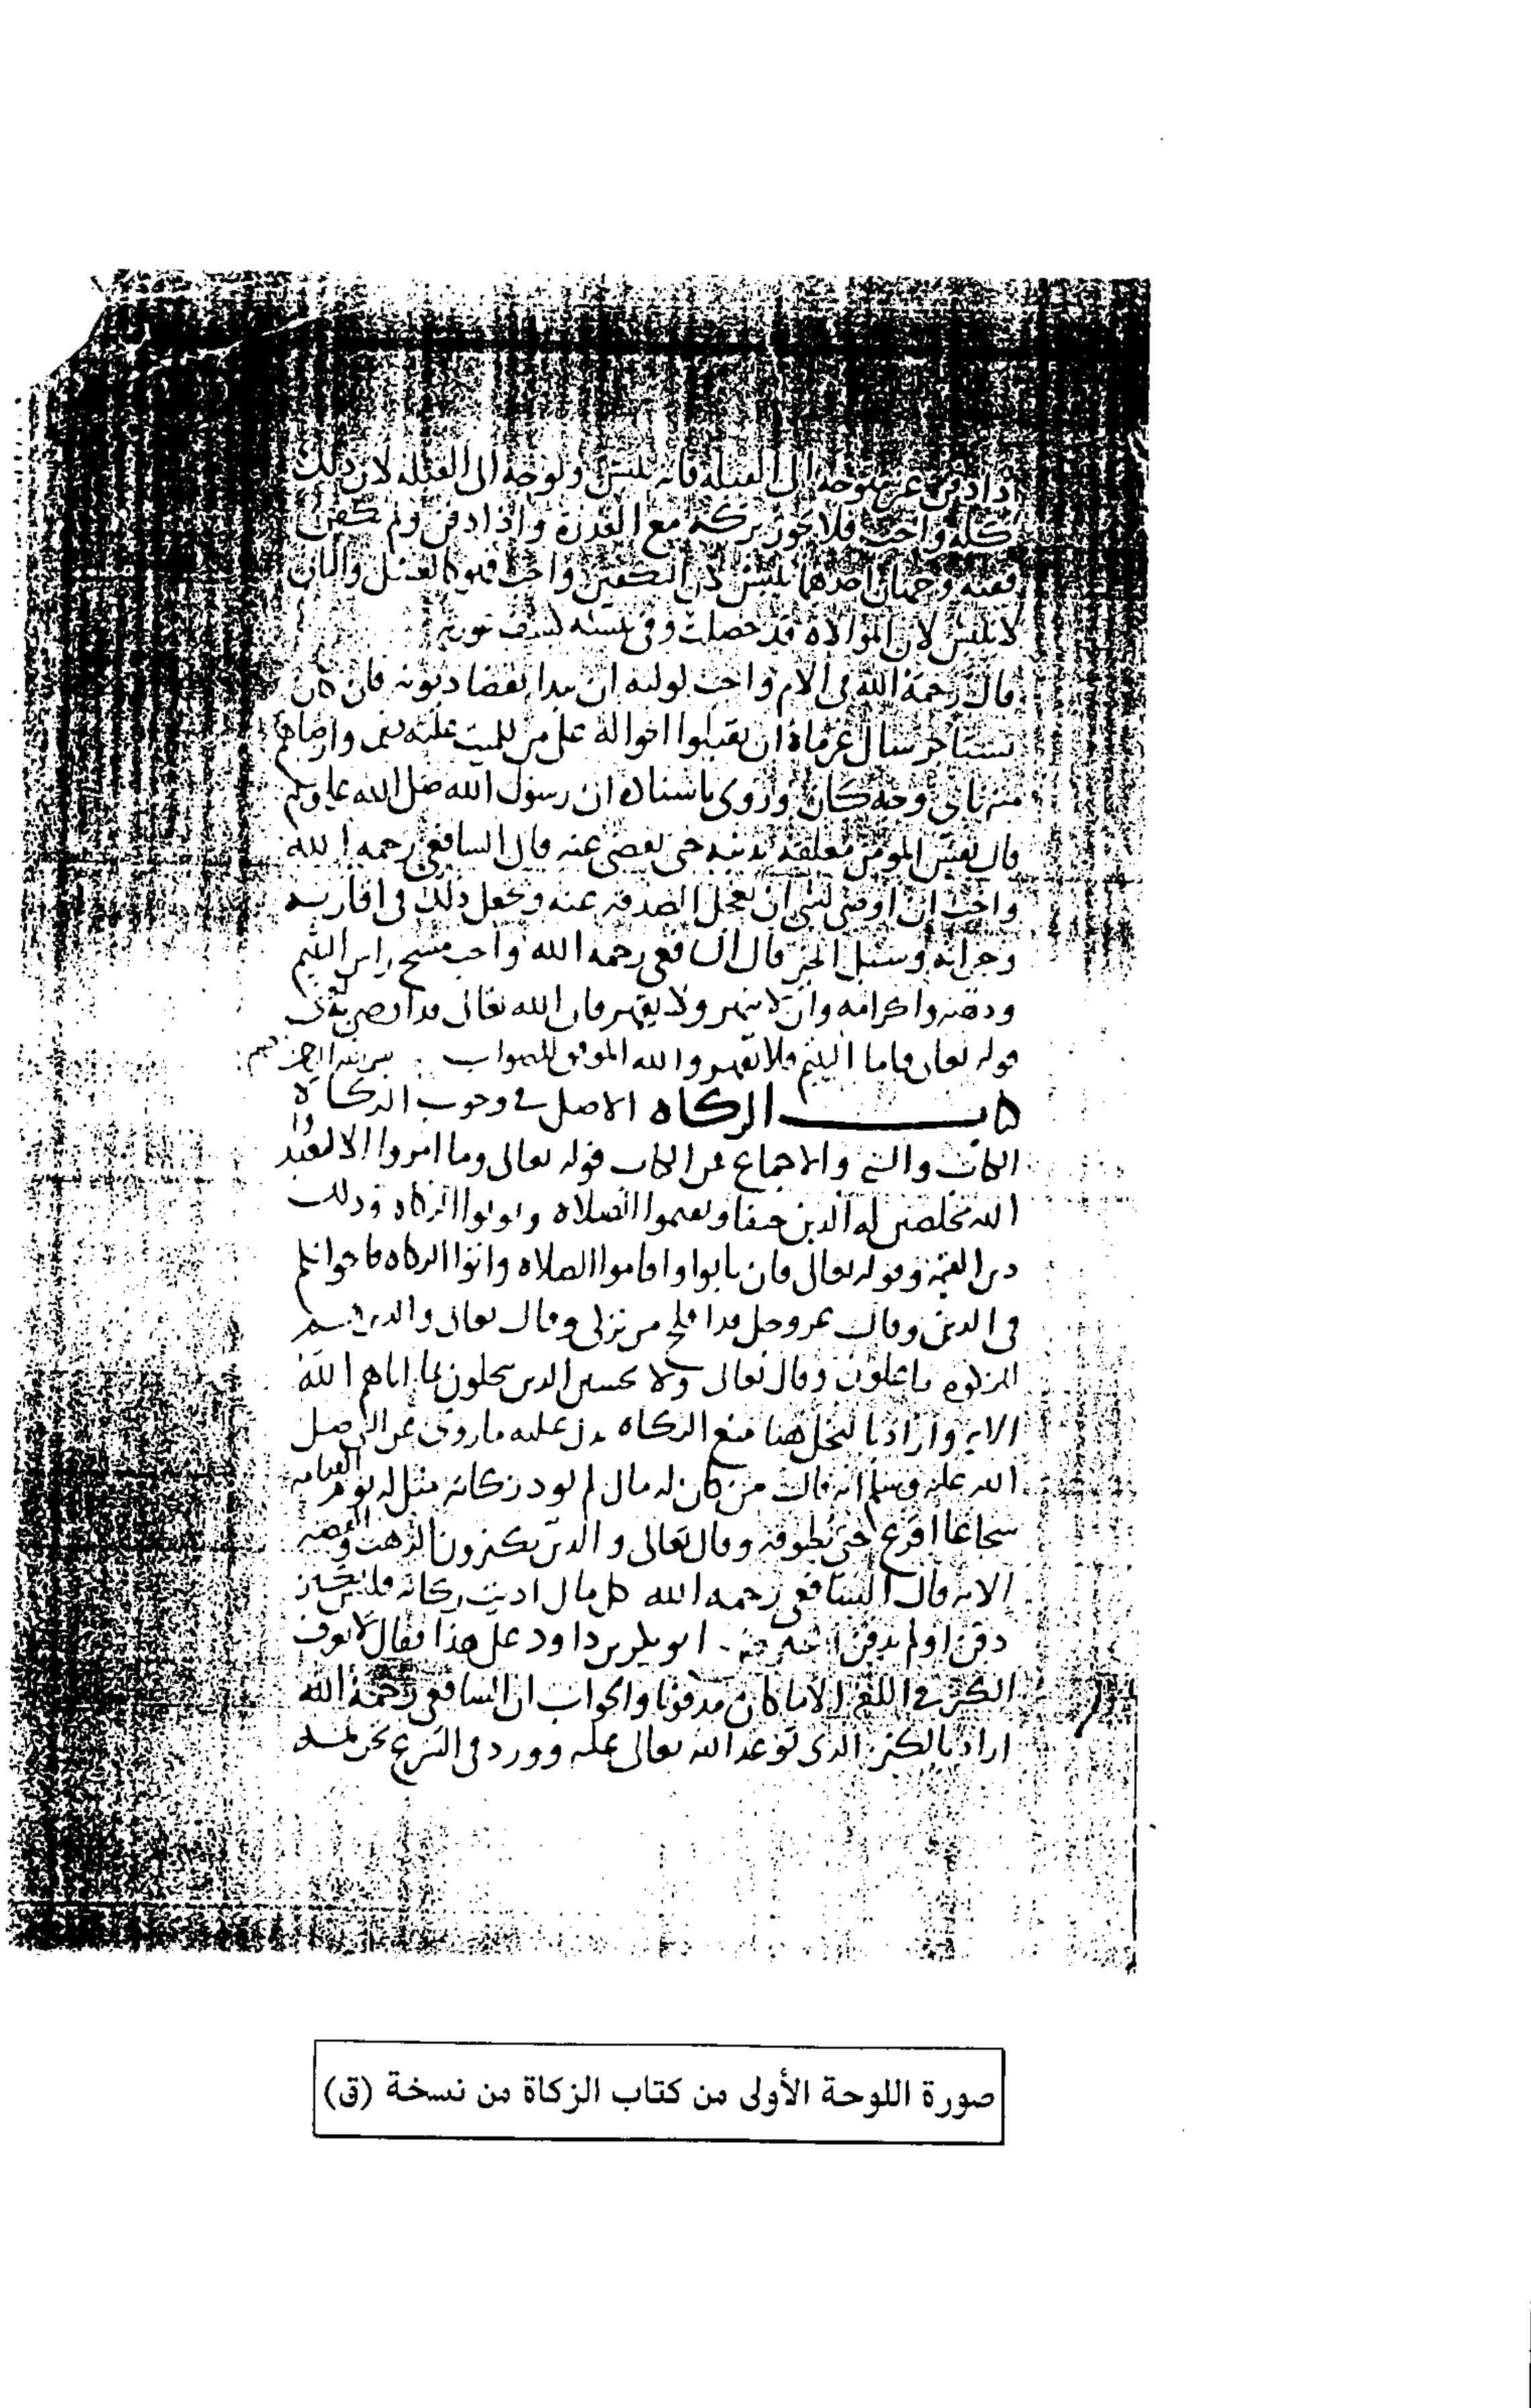 اذا دفن غير متوجه الى القبله فانه ينبش ويوجه الى القبله لان ذلك
كله واجب فلا يجوز تركه مع القدرة واذا دفن ولم يكفن
ففيه وجهان احدهما ينبش لان التكفين واجب فهو كالغسل والثاني
لا ينبش لان المواراة قد حصلت وفي نبشه كشف عورته
قال رحمه الله في الام واجب لوليه ان يبدا بقضا ديونه فان كان
يستاخر سال غرماه ان يقبلوا الحوالة على من للميت عليه وارضاهم
منه باي وجه كان وروى باسناده ان رسول الله صلى الله عليه وسلم
قال نفس المومن معلقة بدينه حتى يقضى عنه قال الشافعي رحمه الله
واحب ان اوصى بشي ان يعجل الصدقه عنه ويجعل ذلك في اقاربه
وجيرانه وسبيل الخير قال الشافعي رحمه الله واحب مسح راس اليتيم
ودهنه واكرامه وان لا ينهر ولا يقهر فان الله تعالى قد اوصى به في
قوله تعالى فاما اليتيم فلا تقهر والله الموفق للصواب بسم الله الرحمن الرحيم
كتاب الزكاه الاصل في وجوب الزكاة
الكتاب والسنه والاجماع فمن الكتاب قوله تعالى وما امروا الا ليعبدوا
الله مخلصين له الدين حنفا ويقيموا الصلاه ويوتوا الزكاه وذلك
دين القيمة وقوله تعالى فان تابوا واقاموا الصلاه واتوا الزكاه فاخوانكم
في الدين وقال عز وجل قد افلح من تزكى وقال تعالى والذين هم
للزكوه فاعلون وقال تعالى ولا يحسبن الذين يبخلون بما اتاهم الله
الايه واراد بالبخل هنا منع الزكاه يدل عليه ما روي عن النبي صلى
الله عليه وسلم انه قال من كان له مال لم يود زكاته مثل له يوم القيامه
شجاعا اقرع حتى يطوقه وقال تعالى والذين يكنزون الذهب والفضه
الايه قال الشافعي رحمه الله كل مال اديت زكاته فليس بكنز
دفن او لم يدفن ابو بكر بن داود على هذا فقال لا يعرف
الكنز في اللغه الا ما كان مدفونا والجواب ان الشافعي رحمه الله
اراد بالكنز الذي توعد الله تعالى عليه وورد في الشرع تحريمه
صورة اللوحة الأولى من كتاب الزكاة من نسخة (ق)